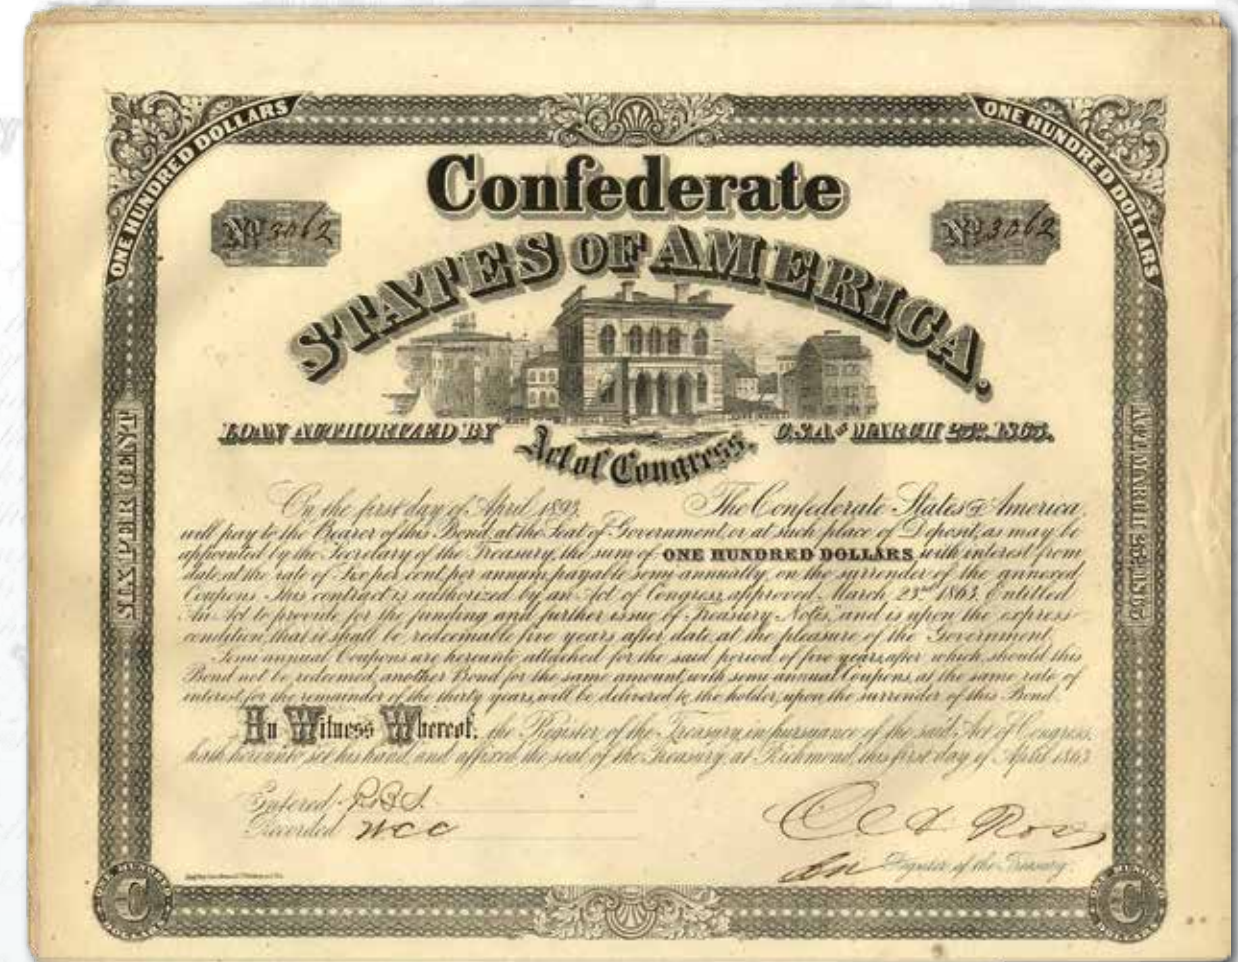 ONE HUNDRED DOLLARS
ONE HUNDRED DOLLARS
Confederate
Nº 3062
Nº 3062
STATES OF AMERICA.
LOAN AUTHORIZED BY Act of Congress, C.S.A. OF MARCH 23RD 1863.
SIX PER CENT
ACT MARCH 23, 1863
On the first day of April 1893, The Confederate States of America
will pay to the Bearer of this Bond, at the Seat of Government, or at such place of Deposit, as may be
appointed by the Secretary of the Treasury, the sum of ONE HUNDRED DOLLARS with interest from
date, at the rate of Six per cent, per annum, payable semi annually, on the surrender of the annexed
Coupons. This contract is authorized by an Act of Congress, approved March 23rd 1863, Entitled
"An Act to provide for the funding and further issue of Treasury Notes," and is upon the express
condition, that it shall be redeemable five years after date, at the pleasure of the Government.
Semi annual Coupons are hereunto attached for the said period of five years, after which, should this
Bond not be redeemed, another Bond for the same amount, with semi annual Coupons, at the same rate of
interest, for the remainder of the thirty years, will be delivered to the holder, upon the surrender of this Bond.
In Witness Whereof, the Register of the Treasury, in pursuance of the said Act of Congress,
hath hereunto set his hand, and affixed the seal of the Treasury, at Richmond, this first day of April 1863
Entered
Recorded WCC
Register of the Treasury.
ONE HUNDRED C DOLLARS
ONE HUNDRED C DOLLARS